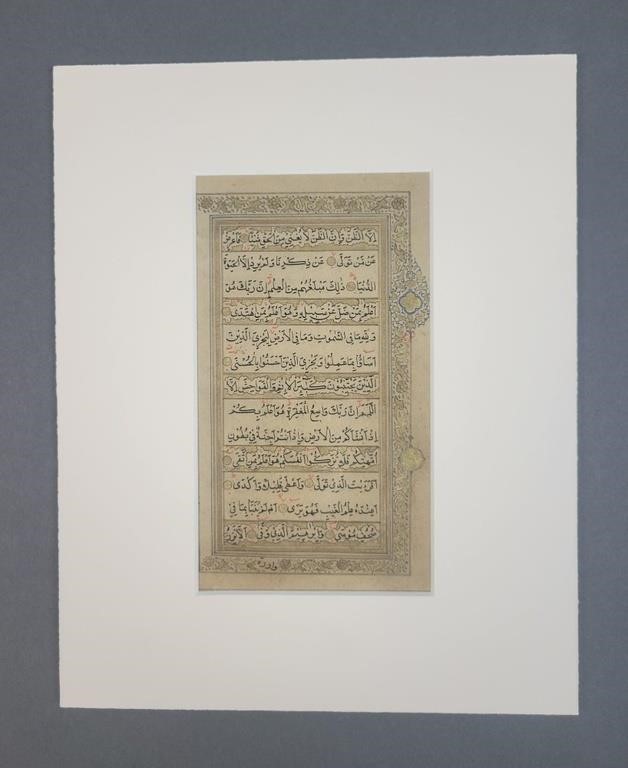 إِلَّا الظَّنَّ وَإِنَّ الظَّنَّ لَا يُغْنِي مِنَ الْحَقِّ شَيْئًا فَأَعْرِضْ
عَنْ مَنْ تَوَلَّى عَنْ ذِكْرِنَا وَلَمْ يُرِدْ إِلَّا الْحَيٰوةَ
الدُّنْيَا ذٰلِكَ مَبْلَغُهُمْ مِنَ الْعِلْمِ إِنَّ رَبَّكَ هُوَ
أَعْلَمُ بِمَنْ ضَلَّ عَنْ سَبِيلِهِ وَهُوَ أَعْلَمُ بِمَنِ اهْتَدَى
وَلِلّٰهِ مَا فِي السَّمٰوٰتِ وَمَا فِي الْأَرْضِ لِيَجْزِيَ الَّذِينَ
أَسَاؤُا بِمَا عَمِلُوا وَيَجْزِيَ الَّذِينَ أَحْسَنُوا بِالْحُسْنَى
الَّذِينَ يَجْتَنِبُونَ كَبٰئِرَ الْإِثْمِ وَالْفَوَاحِشَ إِلَّا
اللَّمَمَ إِنَّ رَبَّكَ وَاسِعُ الْمَغْفِرَةِ هُوَ أَعْلَمُ بِكُمْ
إِذْ أَنْشَأَكُمْ مِنَ الْأَرْضِ وَإِذْ أَنْتُمْ أَجِنَّةٌ فِي بُطُونِ
أُمَّهٰتِكُمْ فَلَا تُزَكُّوا أَنْفُسَكُمْ هُوَ أَعْلَمُ بِمَنِ اتَّقَى
أَفَرَءَيْتَ الَّذِي تَوَلَّى وَأَعْطَى قَلِيلًا وَأَكْدَى
أَعِنْدَهُ عِلْمُ الْغَيْبِ فَهُوَ يَرَى أَمْ لَمْ يُنَبَّأْ بِمَا فِي
صُحُفِ مُوسَى وَإِبْرٰهِيمَ الَّذِي وَفَّى أَلَّا تَزِرُ
وازرة